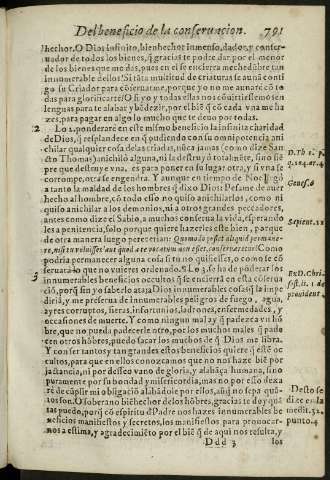 Del beneficio de la conseruacion. 791
hechor. O Dios infinito, bienhechor inmenso, dador, y conser-
uador de todos los bienes, q̃ gracias te podrè dar, por el menor
de los bienes que me das, pues en el se encierra mechedũbre tan
innumerable dellos? Si tãta multitud de criaturas se aunã conti
go su Criador para cõseruarme, porque yo no me aunarè cõ to
das para glorificarte? O si yo y todas ellas nos cõuirtiessemos en
lenguas para te alabar y bẽdezir, por el biẽ q̃ cada vna me ha
zes, para pagar en algo lo mucho que te deuo por todas.
2 Lo 2. ponderarè en este mismo beneficio la infinita claridad
de Dios, q̃ resplandece en q̃ pudiendo con su omnipotencia ani
chilar qualquier cosa de las criadas, nũca jamas (como dize San
cto Thomas) anichilò alguna, ni la destruyò totalmẽte, sino siẽ
pre que destruye vna, es para poner en su lugar otra, y si vna se
corrompe, otra se engendra. Y aunque en tiempo de Noe llegò
a tanto la maldad de los hombres q̃ dixo Dios: Pesame de auer
hecho al hombre, cõ todo esso no quiso anichilarlos, como ni
quiso anichilar a los demonios, ni a otros grandes peccadores,
antes como dize el Sabio, a muchos conserua la vida, esperando
les a penitencia, solo porque quiere hazerles este bien, porque
de otra manera luego perecerian: Quomodo posset aliquid permane-
re, nisi tu voluisses? aut quod a te vocatum non esset, conseruaretur? Como
podria permanecer alguna cosa si tu no quisiesses, o como se cõ
seruarà lo que no vuieres ordenado.
3 §. Lo 3. se ha de põderar los
innumerables beneficios ocultos q̃ se encierrã en esta cõserua
ciõ, porq̃ sin yo saberlo ataja Dios innumerables cosas q̃ la impe
diriã, y me preserua de innumerables peligros de fuego, agua,
ayres corruptos, fieras, infortunios, ladrones, enfermedades, y
occasiones de muerte. Y como ningun mal ay q̃ padezca vn hõ
bre, que no pueda padecerle otro, por los muchos males q̃ pade
cen otros hõbres, puedo sacar los muchos de q̃ Dios me libra.
Y con ser tantos y tan grandes estos beneficios quiere q̃ estẽ oc
cultos, para que en ellos conozcamos que no nos haze biẽ por
jactancia, ni por desseo vano de gloria, y alabãça humana, sino
puramente por su bondad y misericordia, mas no por esso dexa
rè de cũplir mi obligaciõ alabãdole por ellos, aũq̃ no sepa quã-
tos son. O soberano biẽhechor de los hõbres, gracias te doy quã
tas puedo, porq̃ cõ espiritu d̃ Padre nos hazes innumerables be
neficios manifiestos y secretos, los manifiestos para prouocar-
nos a estima, y agradecimiẽto por el biẽ q̃ de aqui nos resulta, y
Ddd 3 los
D. Th 1. p.
q. 104. ar. 4.
Genes. 6
Sapient. 11
Ex D. Chri.
sost. li. 1 de
prouident.
Desto se
dize en la
medit. 32.
punto. 4